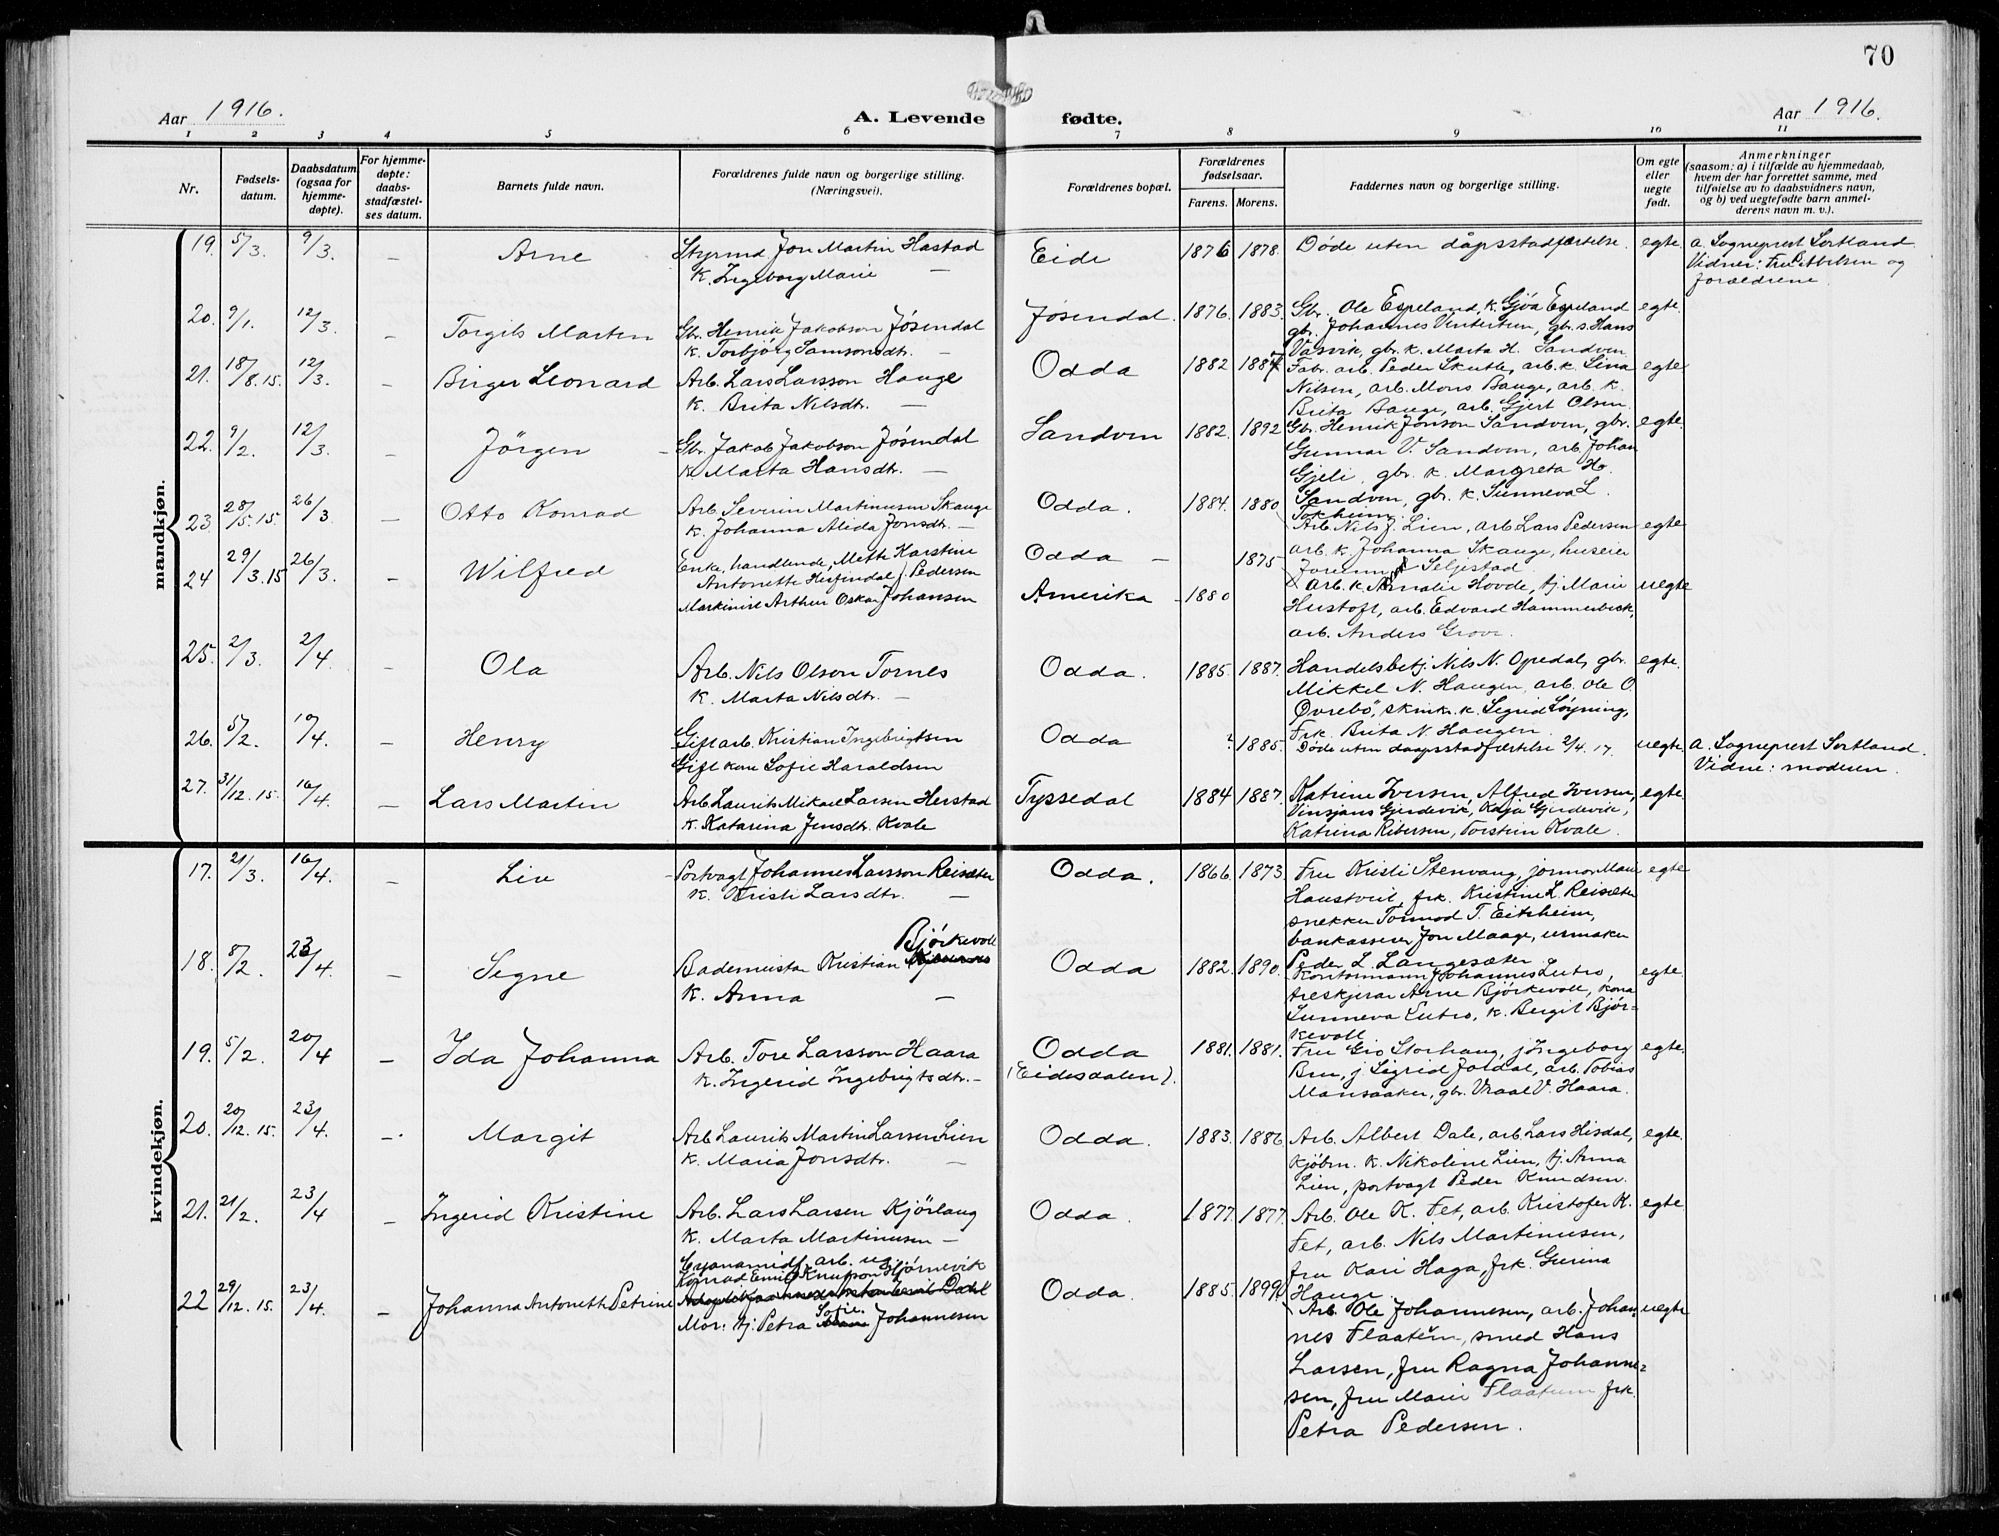 70
Aar 1916.
A. Levende fødte.
Aar 1916.
1 2 3 4 5 6 7 8 9 10 11
Nr.
Fødsels-
datum.
Daabsdatum
(ogsaa for
hjemme-
døpte).
For hjemme-
døpte:
daabs-
stadfæstel-
ses datum.
Barnets fulde navn.
Forældrenes fulde navn og borgerlige stilling.
(Næringsvei).
Forældrenes bopæl.
Forældrenes
fødselsaar.
Farens. Morens.
Faddernes navn og borgerlige stilling.
Om egte
eller
uegte
født.
Anmerkninger
(saasom: a) i tilfælde av hjemmedaab,
hvem der har forrettet samme, med
tilføielse av to daabsvidners navn,
og b) ved uegtefødte barn anmel-
derens navn m. v.).
mandkjøn.
19. 5/3. 9/3. – Arne
Styrmd Jon Martin Hastad
K. Ingeborg Marie –
Eide 1876 1878.
Døde uten dåpsstadfæstelse. egte.
a. Sogneprest Sortland
Vidner: Fru Abelsen og
forældrene
20. 9/1. 12/3. – Torgils Marten
Gbr. Henrik Jakobson Jøsendal
K. Torbjørg Samsonsdtr. –
Jøsendal. 1876. 1883.
Gbr. Ole Espeland, K. Gjøa Espeland
gbr. Johannes Vintertun, gbr. s. Hans
Vasvik, gbr. k. Marta H. Sandven
egte.
21. 18/8.15. 12/3. – Birger Leonard
Arb. Lars Larsson Hauge
K. Brita Nilsdtr. –
Odda 1882 1887
Fabr. arb. Peder Skutle, arb. k. Lina
Nilsen, arb. Mons Bauge, arb. k.
Brita Bauge, arb. Gjert Olsen.
egte
22. 9/2. 12/3. – Jörgen
Gbr. Jakob Jakobson Jøsendal
K. Marta Hansdtr. –
Sandven 1882. 1892
Gbr. Henrik Jonson Sandven, gbr.
Gunnar V. Sandven, arb. Johan
Gjeli, gbr. k. Margreta H.
Sandven, gbr. k. Sunneva L.
Tokheim.
egte.
23 28/5.15. 26/3. – Otto Konrad
Arb. Severin Martinusen Skauge
K. Johanna Alida Jonsdtr. –
Odda. 1884. 1880
Arb Nils J. Lien, arb Lars Pedersen
arb. k. Johanna Skauge, huseier
Seljestad
egte
24 29/3.15 26/3. – Wilfred
Enke, handlende, Mette Karstine
Antonette Herfindal f. Pedersen
Maskinist Arthur Oskar Johansen
Odda – 1875
Amerika – 1880
arb. k. Amalie Hovde, tj. Marie
Hustoft, arb. Edvard Hammerbeck,
arb. Anders Grove.
uegte
25. 2/3. 2/4 – Ola
Arb. Nils Olson Tornes
K. Marta Nilsdtr. –
Odda. 1885. 1887.
Handelsbetj. Nils N. Opedal, gbr.
Mikkel N. Haugen, arb. Ole O.
Øvrebö, k. Sigrid Løyning,
Frk. Brita N. Haugen.
egte.
26. 5/2. 10/4. – Henry
Gift arb. Kristian Ingebrigtsen
Gift kone Sofie Haraldsen
Odda ? 1885.
Døde uten daapsstadfæstelse 2/4.17. uegte
a. Sogneprest Sortland.
Vidne: moderen.
27. 31/12.15. 16/4. – Lars Martin
Arb Laurits Mikael Larsen Herstad
K. Katarina Jensdtr. Kvale
Tyssedal 1884 1887.
Katrine Iversen, Alfred Iversen,
Vinsjans Gjerdevik, Kaja Gjerdevik,
Katrina Ribersen, Torstein Kvale.
egte.
kvindekjøn.
17. 21/3. 16/4. – Liv
Portvagt Johannes Larsson Reisæter
K. Kristi Larsdtr. –
Odda. 1866. 1873.
Fru Kristi Stenvang, jormor Mari
Haustveit, frk. Kristine L. Reisæter
snekker Tormod T. Eitrheim,
bankasserer Jon Maage, urmaker
Peder L. Langesæter
egte
18. 8/2. 23/4. – Signe
Bademester Kristian Björkevoll
K. Anna –
Odda 1882. 1890.
Kontormann Johannes Lutro,
Areskjerar Arne Björkevoll, kona
Sunneva Lutro, k. Bergit Björ-
kevoll
egte.
19. 5/2. 20/4 – Ida Johanna
Arb. Tore Larsson Haara
K. Ingerid Ingebrigtsdtr. –
Odda
(Eidesdalen).
1881. 1881.
Fru Gro Storhaug, j Ingeborg
Bru, j Sigrid Jordal, arb. Tobias
Mansaaker, gbr. Vraal V. Haara.
egte.
20. 20/12.15. 23/4. –. Margit
Arb. Laurits Martin Larsen Lien
K. Maria Jonsdtr. –
Odda. 1883. 1886
Arb. Albert Dale, arb. Lars Hisdal,
Kjöbm. k. Nikoline Lien, tj. Anna
Lien, portvagt Peder Knudsen.
egte.
21. 21/2. 23/4 – Ingerid Kristine
Arb. Lars Larsen Kjörlaug
K. Marta Martinusen –
Odda. 1877. 1877.
Arb. Ole K. Fet, arb. Kristofer K.
Fet, arb. Nils Martinusen,
fru Kari Haga, frk. Gurina
Hauge.
egte
22 29/12.15. 23/4. – Johanna Antonette Petrine
Cyanamidf. arb. ug.
Konrad Emil Knutson Hjørnevik
Mor: tj. Petra Sofie Johannesen
Odda. 1885. 1899
Arb. Ole Johannesen, arb. Johan-
nes Flaatum, smed Hans
Larsen, fru Ragna Johanne-
sen, fru Marie Flaatum frk.
Petra Pedersen.
uegte